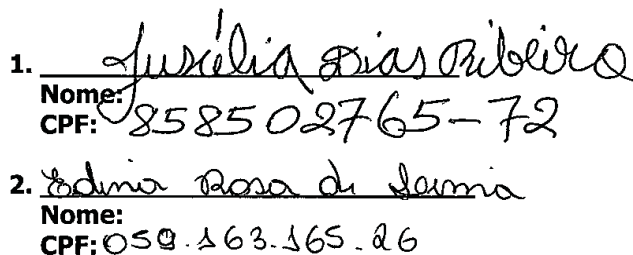 1. Jucélia Dias Ribeiro
Nome:
CPF: 858502765-72
2. Edina Rosa de
Nome:
CPF: 059.163.165.26